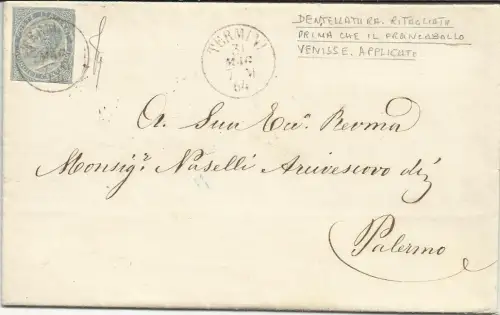 DENTELLATURA RITAGLIATA
PRIMA CHE IL FRANCOBOLLO
VENISSE APPLICATO
TERMINI
31
MAG
7 M
64
A Sua Ecc. Revma
Monsigr. Naselli Arcivescovo di
Palermo